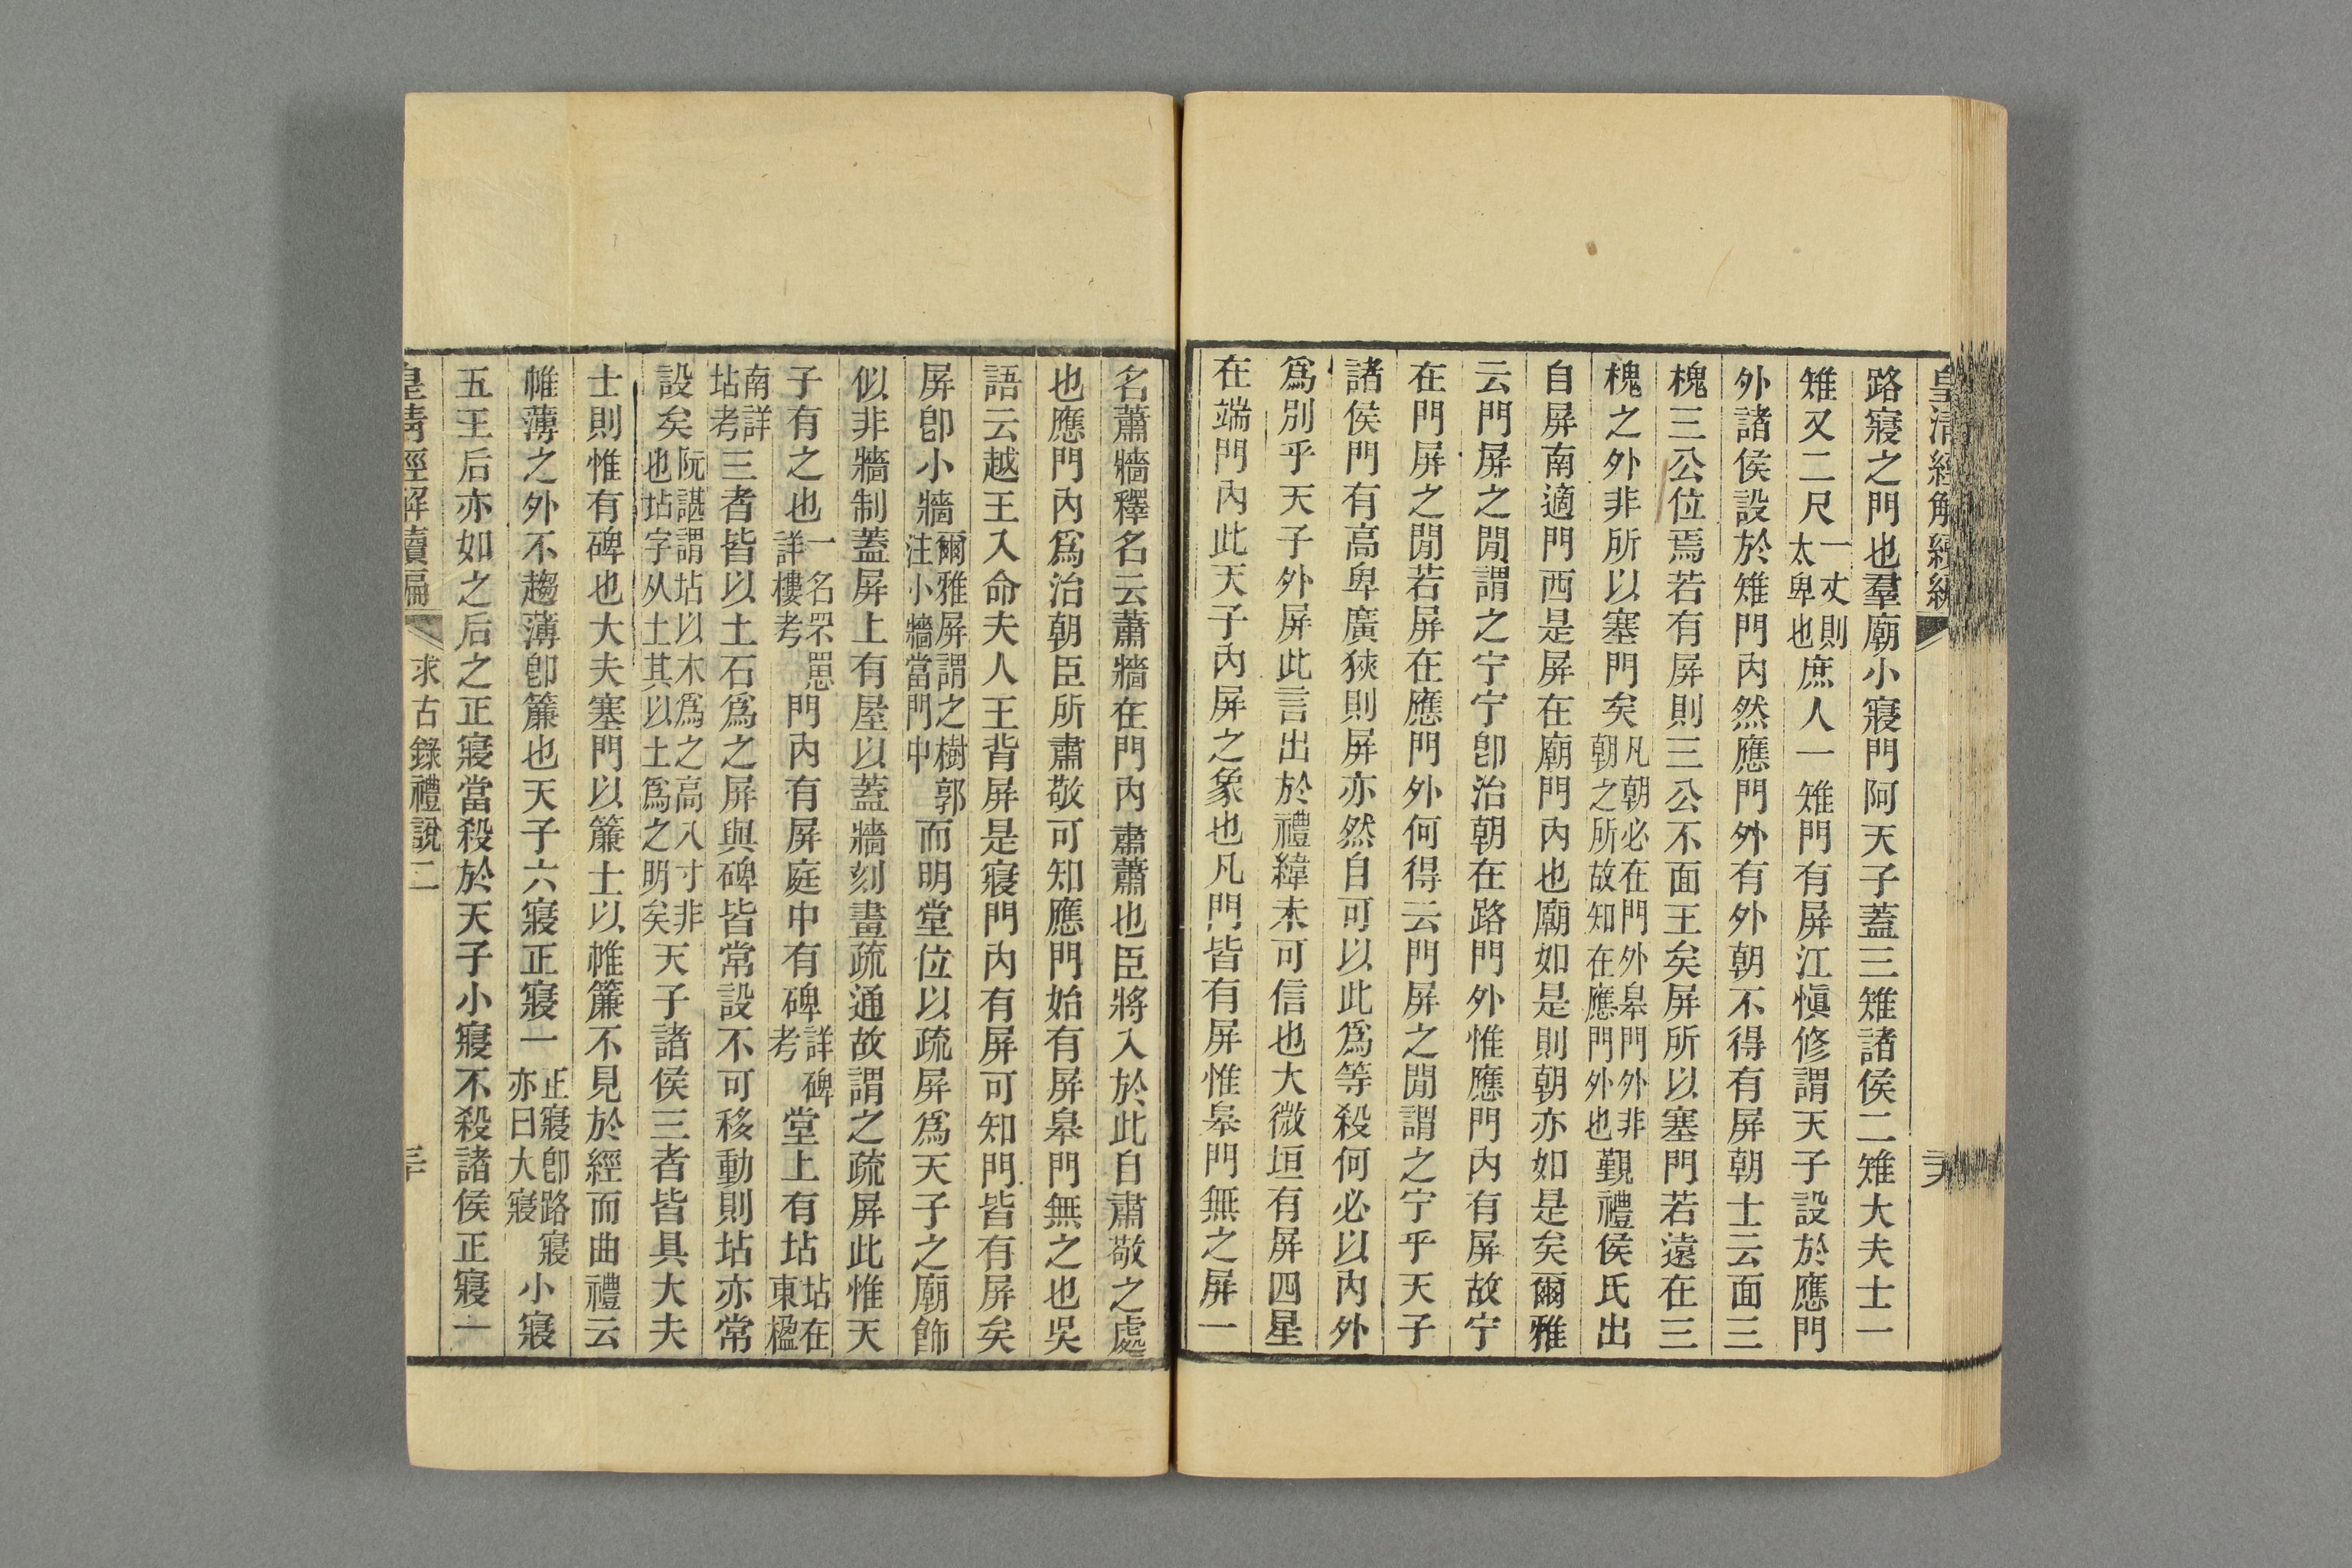 皇清經解續編
路寢之門也羣廟小寢門阿天子蓋三雉諸侯二雉大夫士一
雉又二尺一丈則太卑也庶人一雉門有屏江愼修謂天子設於應門
外諸侯設於雉門內然應門外有外朝不得有屏朝士云面三
槐三公位焉若有屏則三公不面王矣屏所以塞門若遠在三
槐之外非所以塞門矣凡朝必在門外皋門外非朝之所故知在應門外也覲禮侯氏出
自屏南適門西是屏在廟門內也廟如是則朝亦如是矣爾雅
云門屏之閒謂之宁宁卽治朝在路門外惟應門內有屏故宁
在門屏之閒若屏在應門外何得云門屏之閒謂之宁乎天子
諸侯門有高卑廣狹則屏亦然自可以此爲等殺何必以內外
爲別乎天子外屏此言出於禮緯未可信也大微垣有屏四星
在端門內此天子內屏之象也凡門皆有屏惟皋門無之屏一
名蕭牆釋名云蕭牆在門內肅蕭也臣將入於此自肅敬之處
也應門內爲治朝臣所肅敬可知應門始有屏皋門無之也吳
語云越王入命夫人王背屏是寢門內有屏可知門皆有屏矣
屏卽小牆爾雅屏謂之樹郭注小牆當門中而明堂位以疏屏爲天子之廟飾
似非牆制蓋屏上有屋以蓋牆刻畫疏通故謂之疏屏此惟天
子有之也一名罘罳詳樓考門內有屏庭中有碑詳碑考堂上有坫坫在東楹
南詳坫考三者皆以土石爲之屏與碑皆常設不可移動則坫亦常
設矣阮諶謂坫以木爲之高八寸非也坫字从土其以土爲之明矣天子諸侯三者皆具大夫
士則惟有碑也大夫塞門以簾士以帷簾不見於經而曲禮云
帷薄之外不趨薄卽簾也天子六寢正寢一正寢卽路寢亦曰大寢小寢
五王后亦如之后之正寢當殺於天子小寢不殺諸侯正寢一
皇清經解續編
求古錄禮說二